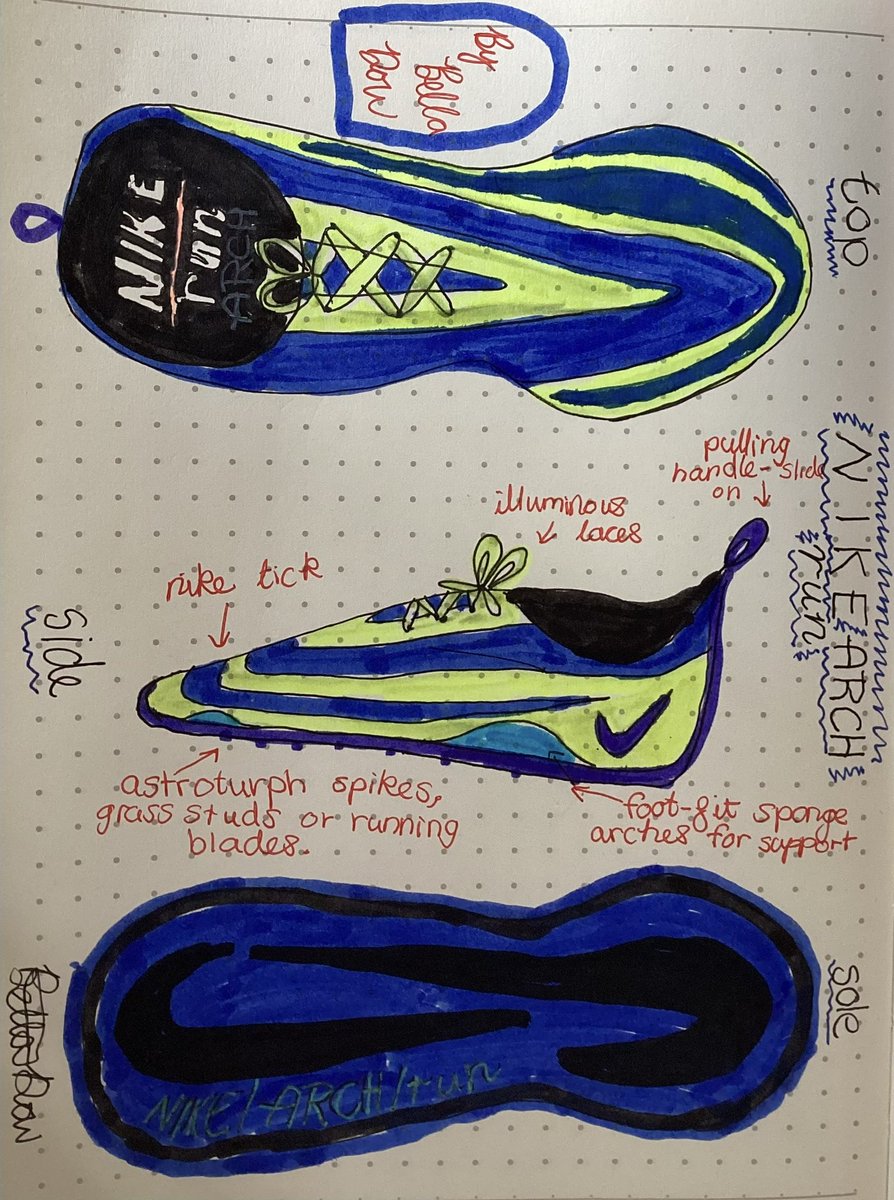 By
Bella
Dow
top
NIKE
run
ARCH
NIKE ARCH
run
pulling
handle-slide
on
illuminous
laces
nike tick
side
astroturph spikes,
grass studs or running
blades.
foot-fit sponge
arches for support
sole
NIKE/ARCH/run